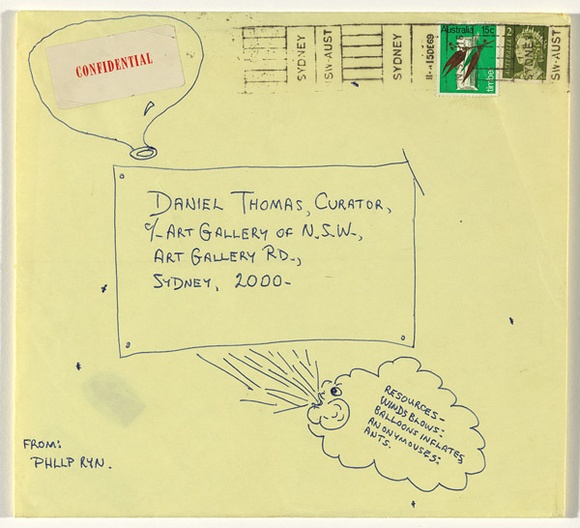 CONFIDENTIAL
SYDNEY
NSW-AUST
SYDNEY
15DE69
Australia 15c
SYDNEY
NSW-AUST
DANIEL THOMAS, CURATOR,
c/- ART GALLERY OF N.S.W.,
ART GALLERY RD.,
SYDNEY, 2000-
RESOURCES-
WINDSBLOWS:
BALLOONS INFLATES,
ANONYMOUSES:
ANTS.
FROM:
PHLLP RYN.